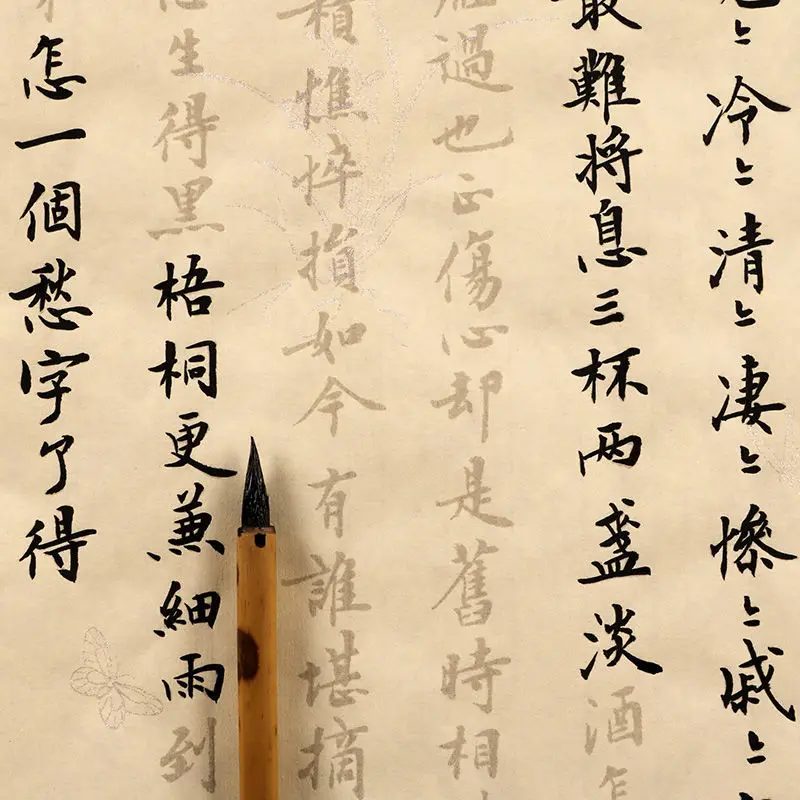 冷〻清〻凄〻慘〻戚〻
最難將息三杯两盞淡酒怎
過也正傷心却是舊時相
積憔悴損如今有誰堪摘
生得黑梧桐更兼細雨到
怎一個愁字了得